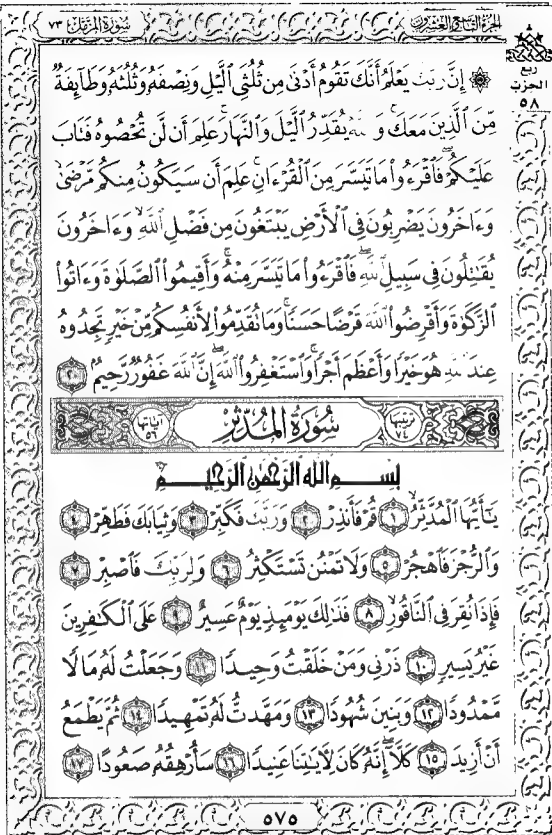 الجزء التاسع والعشرون
سورة المزمل ٧٣
ربع
الحزب
٥٨
۞ إِنَّ رَبَّكَ يَعْلَمُ أَنَّكَ تَقُومُ أَدْنَىٰ مِن ثُلُثَىِ ٱلَّيْلِ وَنِصْفَهُۥ وَثُلُثَهُۥ وَطَآئِفَةٌ
مِّنَ ٱلَّذِينَ مَعَكَ ۚ وَٱللَّهُ يُقَدِّرُ ٱلَّيْلَ وَٱلنَّهَارَ ۚ عَلِمَ أَن لَّن تُحْصُوهُ فَتَابَ
عَلَيْكُمْ ۖ فَٱقْرَءُوا۟ مَا تَيَسَّرَ مِنَ ٱلْقُرْءَانِ ۚ عَلِمَ أَن سَيَكُونُ مِنكُم مَّرْضَىٰ ۙ
وَءَاخَرُونَ يَضْرِبُونَ فِى ٱلْأَرْضِ يَبْتَغُونَ مِن فَضْلِ ٱللَّهِ ۙ وَءَاخَرُونَ
يُقَٰتِلُونَ فِى سَبِيلِ ٱللَّهِ ۖ فَٱقْرَءُوا۟ مَا تَيَسَّرَ مِنْهُ ۚ وَأَقِيمُوا۟ ٱلصَّلَوٰةَ وَءَاتُوا۟
ٱلزَّكَوٰةَ وَأَقْرِضُوا۟ ٱللَّهَ قَرْضًا حَسَنًا ۚ وَمَا تُقَدِّمُوا۟ لِأَنفُسِكُم مِّنْ خَيْرٍ تَجِدُوهُ
عِندَ ٱللَّهِ هُوَ خَيْرًا وَأَعْظَمَ أَجْرًا ۚ وَٱسْتَغْفِرُوا۟ ٱللَّهَ ۖ إِنَّ ٱللَّهَ غَفُورٌ رَّحِيمٌۢ ٢٠
ترتيبها ٧٤ سورة المدثر آياتها ٥٦
بسم الله الرحمن الرحيم
يَٰٓأَيُّهَا ٱلْمُدَّثِّرُ ١ قُمْ فَأَنذِرْ ٢ وَرَبَّكَ فَكَبِّرْ ٣ وَثِيَابَكَ فَطَهِّرْ ٤
وَٱلرُّجْزَ فَٱهْجُرْ ٥ وَلَا تَمْنُن تَسْتَكْثِرُ ٦ وَلِرَبِّكَ فَٱصْبِرْ ٧
فَإِذَا نُقِرَ فِى ٱلنَّاقُورِ ٨ فَذَٰلِكَ يَوْمَئِذٍ يَوْمٌ عَسِيرٌ ٩ عَلَى ٱلْكَٰفِرِينَ
غَيْرُ يَسِيرٍ ١٠ ذَرْنِى وَمَنْ خَلَقْتُ وَحِيدًا ١١ وَجَعَلْتُ لَهُۥ مَالًا
مَّمْدُودًا ١٢ وَبَنِينَ شُهُودًا ١٣ وَمَهَّدتُّ لَهُۥ تَمْهِيدًا ١٤ ثُمَّ يَطْمَعُ
أَنْ أَزِيدَ ١٥ كَلَّآ ۖ إِنَّهُۥ كَانَ لِـَٔايَٰتِنَا عَنِيدًا ١٦ سَأُرْهِقُهُۥ صَعُودًا ١٧
٥٧٥